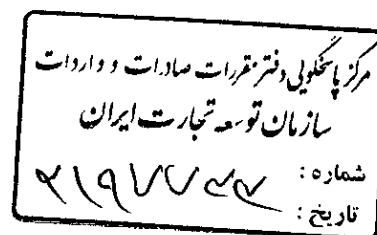 مرکز پاسخگویی دفتر مقررات صادرات و واردات
سازمان توسعه تجارت ایران
شماره :
تاریخ :